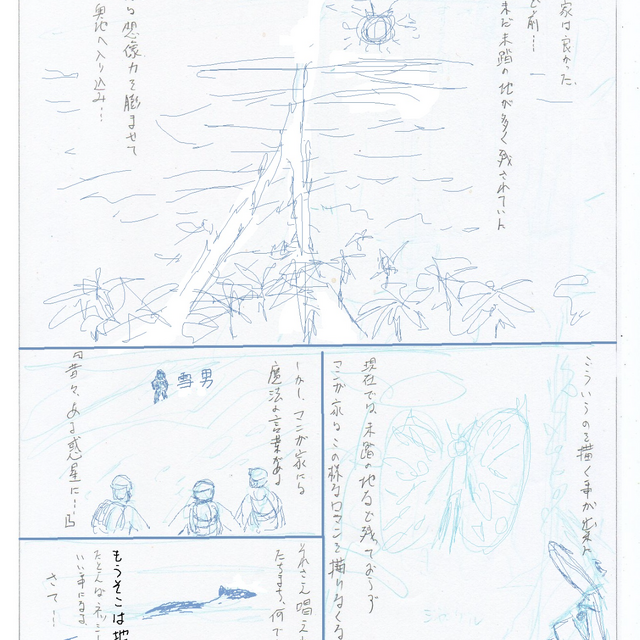 家は良かった
ど前…
未だ未踏の地が多く残されていた
想像力を膨ませて
奥地へ入り込み…
こういうのを描く事が出来た
現在では、未踏の地など残っておらず
マンガ家はこの様なロマンを描けなくな
しかし、マンガ家には
魔法の言葉がある
雪男
昔々、ある惑星に…
それさえ唱え
たちまち、何で
もうそこは地
たとえば、ネッシー
さて…